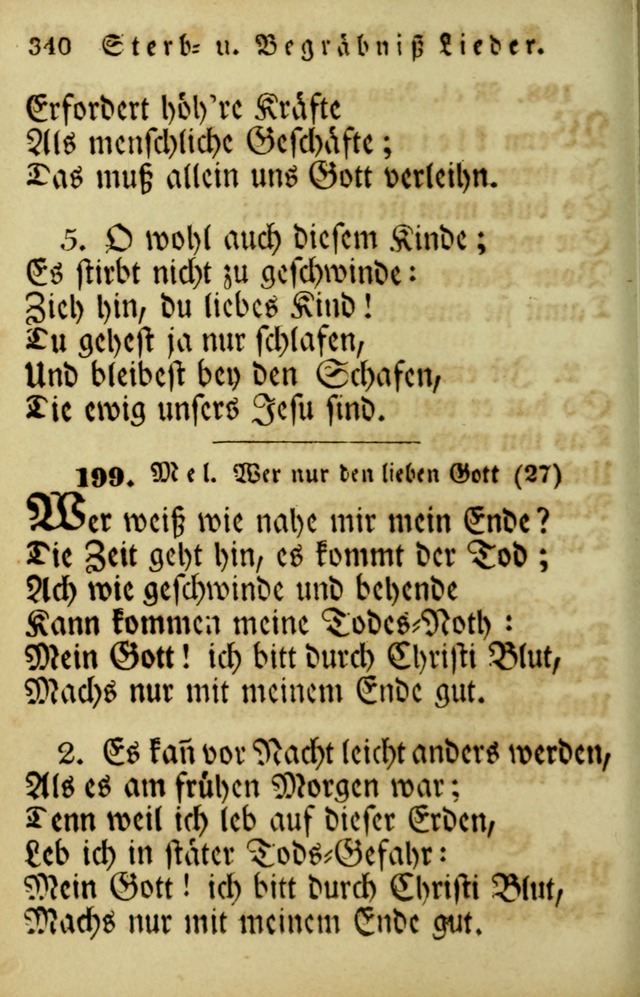 340 Sterb- u. Begräbniß Lieder.
Erfordert höh're Kräfte
Als menschliche Geschäfte;
Das muß allein uns Gott verleihn.
5. O wohl auch diesem Kinde;
Es stirbt nicht zu geschwinde:
Zieh hin, du liebes Kind!
Du gehest ja nur schlafen,
Und bleibest bey den Schafen,
Die ewig unsers Jesu sind.
199. Mel. Wer nur den lieben Gott (27)
Wer weiß wie nahe mir mein Ende?
Die Zeit geht hin, es kommt der Tod;
Ach wie geschwinde und behende
Kann kommen meine Todes-Noth:
Mein Gott! ich bitt durch Christi Blut,
Machs nur mit meinem Ende gut.
2. Es kañ vor Nacht leicht anders werden,
Als es am frühen Morgen war;
Denn weil ich leb auf dieser Erden,
Leb ich in stäter Tods-Gefahr:
Mein Gott! ich bitt durch Christi Blut,
Machs nur mit meinem Ende gut.